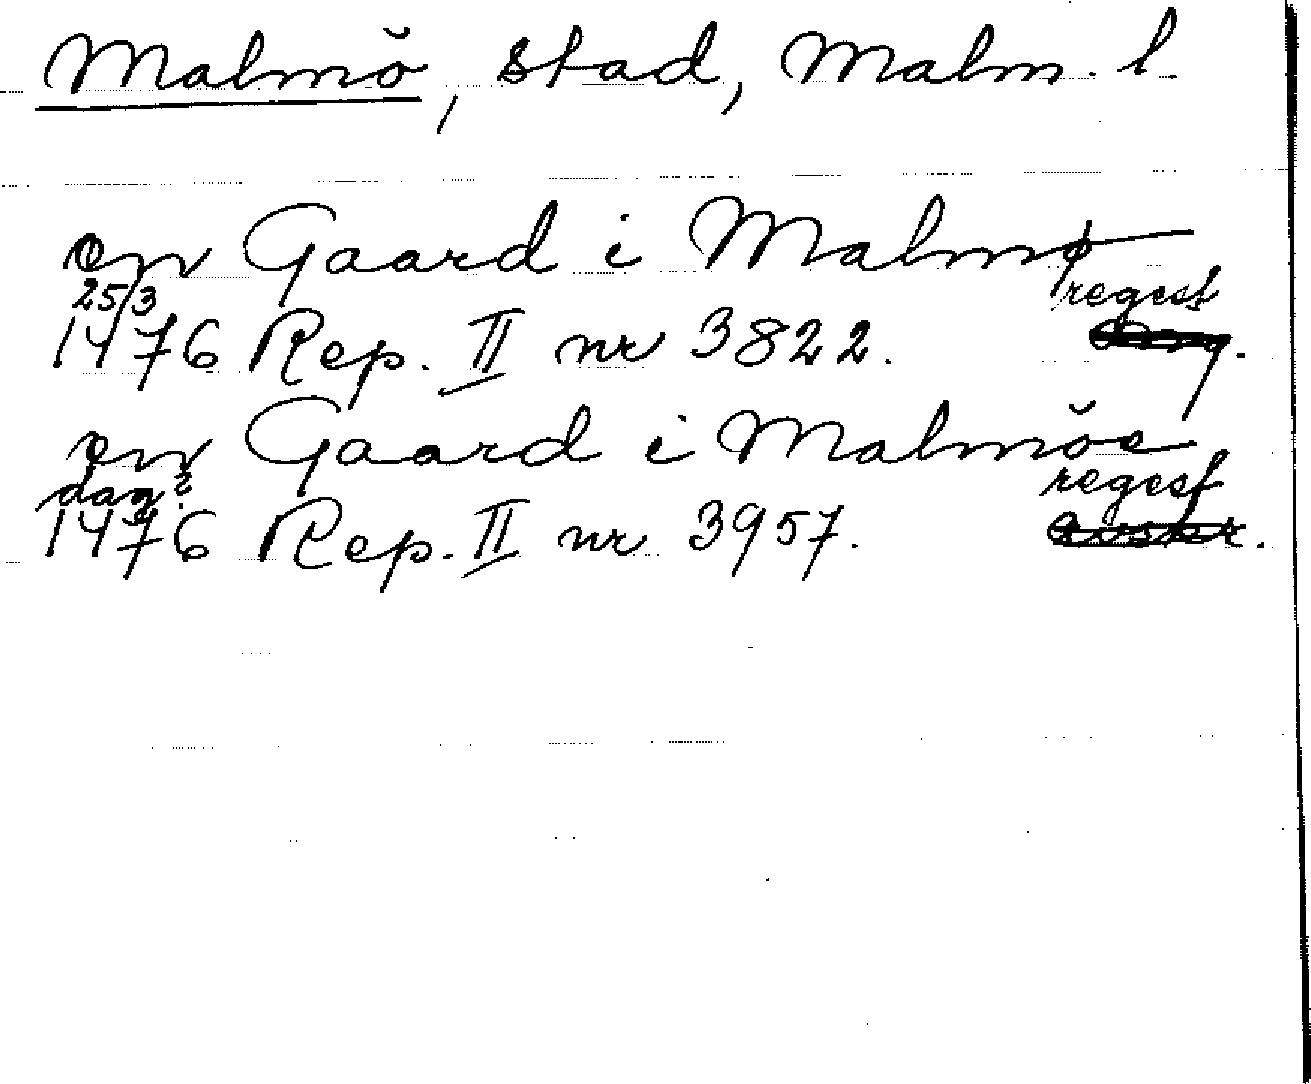 Malmö, stad, Malm. l
en Gaard i Malmø
25/3 regest
1476 Rep. II nr 3822.
en Gaard i Malmöe
dag? regest
1476 Rep. II nr 3957.